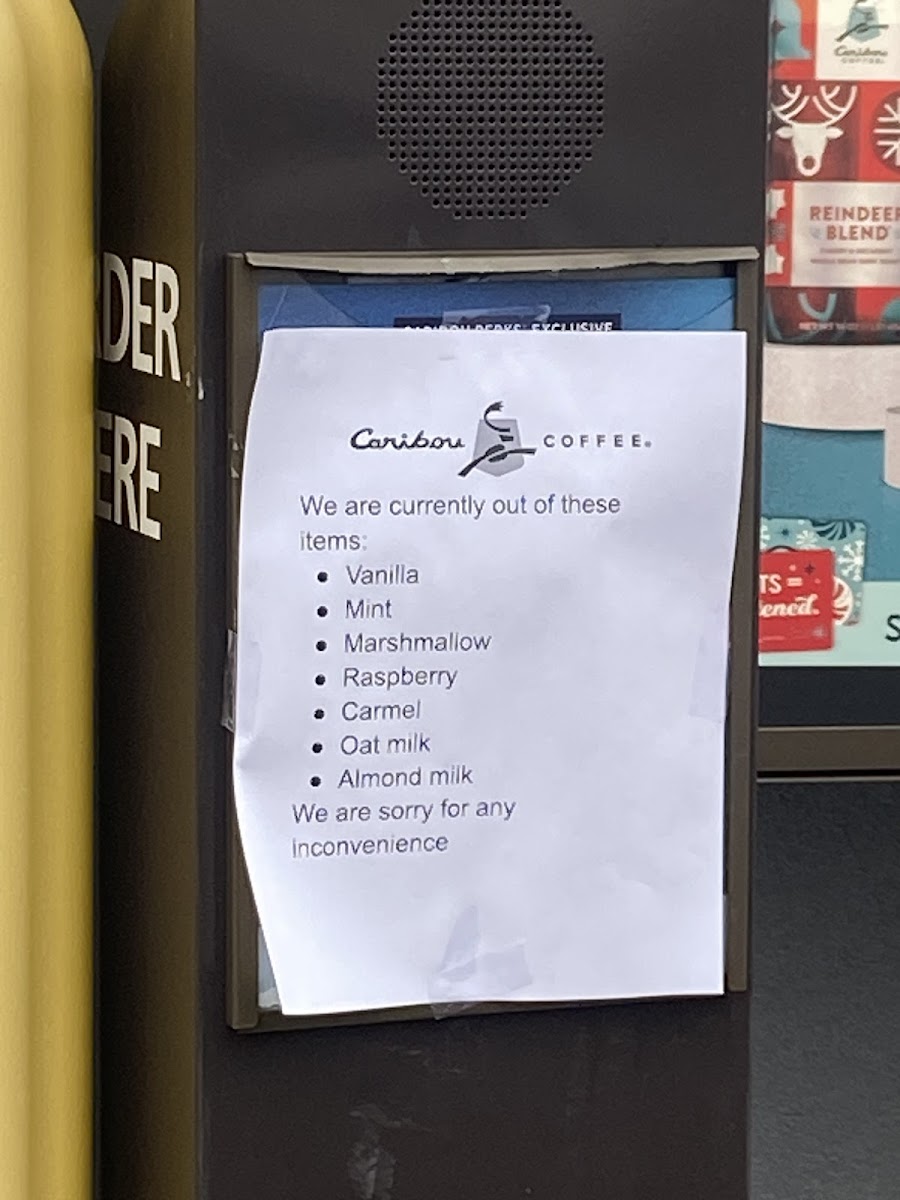 Caribou
COFFEE
REINDEER
BLEND
DER
ERE
CARIBOU PERKS EXCLUSIVE
Caribou COFFEE®
We are currently out of these
items:
• Vanilla
• Mint
• Marshmallow
• Raspberry
• Carmel
• Oat milk
• Almond milk
We are sorry for any
inconvenience
TS =
ened.
S